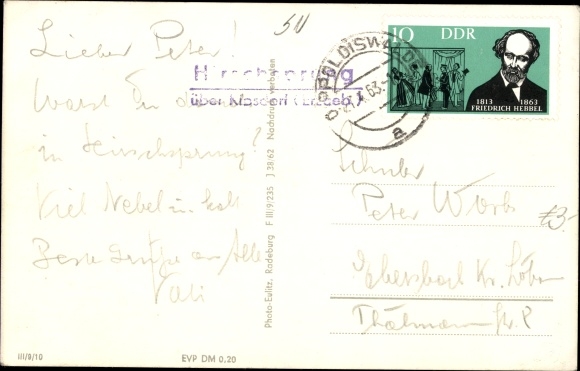 Lieber Peter!
Warst Du
in Hirschsprung?
Viel Nebel u. kalt
Beste Grüße an Alle
Vati
50
Hirschsprung
über Klasdorf (Erzgeb.)
DIPPOLDISWALDE
63
a
10 DDR
1813 1863
FRIEDRICH HEBBEL
Schüler
Peter Worbs
Ebersbach Kr. Löbau
Thälmannstr.
£3-
Photo-Eulitz, Radeburg F III/9/235 J 38/62 Nachdruck verboten
III/9/10
EVP DM 0,20